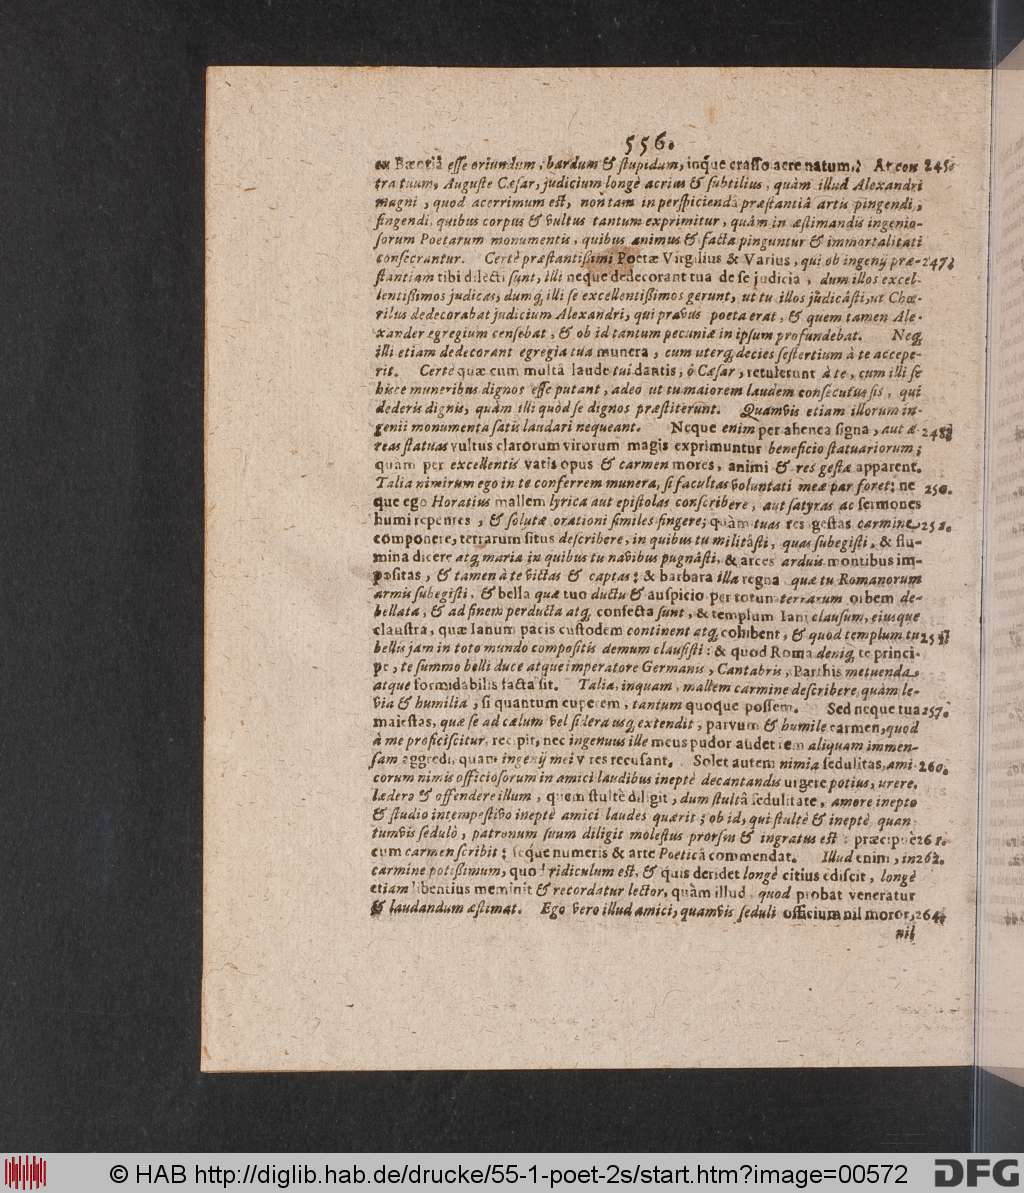 556.
ex Bæotiâ esse oriundum, bardum & stupidum, inq́ue crasso aere natum,? At con 245.
tra tuum, Auguste Cæsar, judicium longè acrius & subtilius, quàm illud Alexandri
magni, quod acerrimum est, non tam in perspiciendâ præstantiâ artis pingendi,
fingendi, quibus corpus & vultus tantum exprimitur, quàm in æstimandis ingenio-
sorum Poetarum monumentis, quibus animus & facta pinguntur & immortalitati
consecrantur. Certè præstantissimi Poetæ Virgilius & Varius, qui ob ingenij præ- 247.
stantiam tibi dilecti sunt, illi neque dedecorant tua de se judicia, dum illos excel-
lentissimos judicas, dumq́; illi se excellentissimos gerunt, ut tu illos judicâsti, ut Chœ-
rilus dedecorabat judicium Alexandri, qui pravus poeta erat, & quem tamen Ale-
xander egregium censebat, & ob id tantum pecuniæ in ipsum profundebat. Neq́;
illi etiam dedecorant egregia tua munera, cum uterq́; decies sestertium à te accepe-
rit. Certè quæ cum multâ laude tui dantis, ô Cæsar, retulerunt à te, cum illi se
hisce muneribus dignos esse putant, adeò ut tu maiorem laudem consecutus sis, qui
dederis dignis, quàm illi quòd se dignos præstiterunt. Quamvis etiam illorum in-
genii monumenta satis laudari nequeant. Neque enim per ahenea signa, aut æ- 248.
reas statuas vultus clarorum virorum magis exprimuntur beneficio statuariorum;
quàm per excellentis vatis opus & carmen mores, animi & res gestæ apparent.
Talia nimirum ego in te conferrem munera, si facultas voluntati meæ par foret: ne 250.
que ego Horatius mallem lyrica aut epistolas conscribere, aut satyras ac sermones
humi repentes, & solutæ orationi similes fingere; quàm tuas res gestas carmine 251.
componere, terrarum situs describere, in quibus tu militâsti, quas subegisti, & flu-
mina dicere atq́; maria in quibus tu navibus pugnâsti, & arces arduis montibus im-
positas, & tamen à te victas & captas: & barbara illa regna quæ tu Romanorum
armis subegisti, & bella quæ tuo ductu & auspicio per totum terrarum orbem de-
bellata, & ad finem perducta atq́; confecta sunt, & templum Iani clausum, eiusque
claustra, quæ Ianum pacis custodem continent atq́; cohibent, & quòd templum tu
bellis jam in toto mundo compositis demum clausisti: & quod Roma deniq́; te princi-
pe, te summo belli duce atque imperatore Germanis, Cantabris, Parthis metuenda,
atque formidabilis facta sit. Talia, inquam, mallem carmine describere, quàm le-
via & humilia, si quantum cuperem, tantum quoque possem. Sed neque tua 257.
maiestas, quæ se ad cælum vel sidera usq́; extendit, parvum & humile carmen, quod
à me proficiscitur, recipit, nec ingenuus ille meus pudor audet rem aliquam immen-
sam aggredi, quam ingenij mei vires recusant. Solet autem nimia sedulitas, ami- 260.
corum nimis officiosorum in amici laudibus ineptè decantandis urgere potius, urere,
lædere & offendere illum, quem stultè diligit, dum stultâ sedulitate, amore inepto
& studio intempestivo ineptè amici laudes quærit; ob id, qui stultè & ineptè quan
tumvis sedulò, patronum suum diligit molestus prorsus & ingratus est: præcipuè 261.
cum carmen scribit; seque numeris & arte Poeticâ commendat. Illud enim, in 262.
carmine potissimum, quod ridiculum est, & quis deridet longè citius ediscit, longè
etiam libentius meminit & recordatur lector, quàm illud, quod probat veneratur
& laudandum æstimat. Ego vero illud amici, quamvis seduli officium nil moror, 264.
nil
© HAB http://diglib.hab.de/drucke/55-1-poet-2s/start.htm?image=00572
DFG